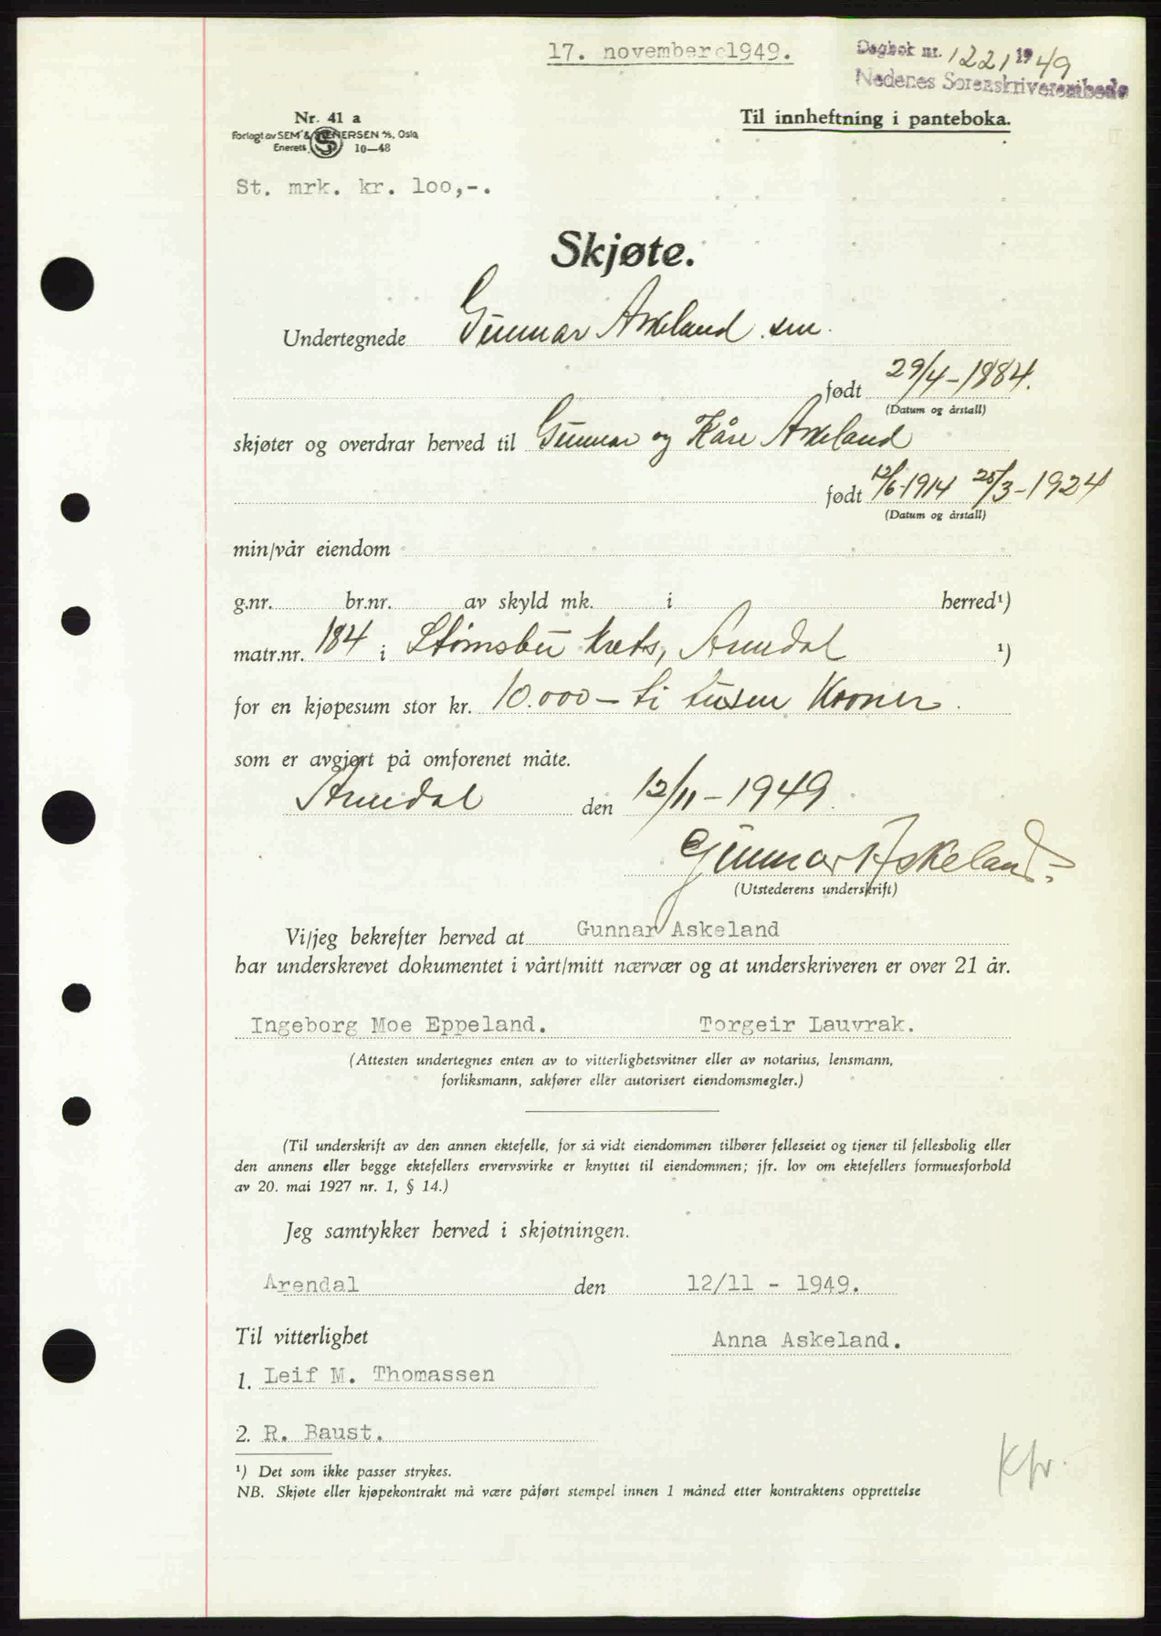 17. november 1949.
Dagbok nr. 1221 1949
Nedenes Sorenskriverembede
Nr. 41 a
Til innheftning i panteboka.
Forlagt av SEM & STENERSEN A/S, Oslo
Enerett 10—48
St. mrk. kr. 100,-.
Skjøte.
Undertegnede Gunnar Askeland sen.
født 29/4-1884.
(Datum og årstall)
skjøter og overdrar herved til Gunnar og Kåre Askeland
født 12/6-1914 25/3-1924
(Datum og årstall)
min/vår eiendom
g.nr. br.nr. av skyld mk. i herred¹)
matr.nr. 184 i Strømsbu krets, Arendal ¹)
for en kjøpesum stor kr. 10.000 – ti tusen Kroner.
som er avgjort på omforenet måte.
Arendal den 12/11-1949.
Gunnar Askeland
(Utstederens underskrift)
Vi/jeg bekrefter herved at Gunnar Askeland
har underskrevet dokumentet i vårt/mitt nærvær og at underskriveren er over 21 år.
Ingeborg Moe Eppeland. Torgeir Lauvrak.
(Attesten undertegnes enten av to vitterlighetsvitner eller av notarius, lensmann,
forliksmann, sakfører eller autorisert eiendomsmegler.)
(Til underskrift av den annen ektefelle, for så vidt eiendommen tilhører felleseiet og tjener til fellesbolig eller
den annens eller begge ektefellers ervervsvirke er knyttet til eiendommen; jfr. lov om ektefellers formuesforhold
av 20. mai 1927 nr. 1, § 14.)
Jeg samtykker herved i skjøtningen.
Arendal den 12/11 - 1949.
Til vitterlighet
Anna Askeland.
1. Leif M. Thomassen
2. R. Baust.
¹) Det som ikke passer strykes.
NB. Skjøte eller kjøpekontrakt må være påført stempel innen 1 måned etter kontraktens opprettelse